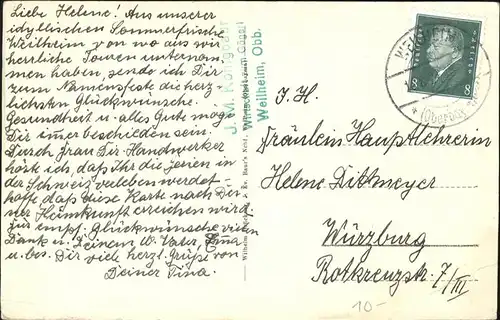 Liebe Helene! Aus unserer
idyllischen Sommerfrische
Weilheim von wo aus wir
herrliche Touren unternom-
men haben, sende ich Dir
zum Namensfeste die herz-
lichsten Glückwünsche.
Gesundheit u. alles Gute möge
Dir immer beschieden sein.
Durch Frau Dir. Handwerker
hörte ich, dass Ihr die Ferien in
der Schweiz verleben werdet-
hoffe, dass diese Karte nach Dei-
ner Heimkunft erreichen wird.
Für empf. Glückwünsche vielen
Dank u. Deinem w. Vater,
u. bes. Dir viele herzl. Grüße von
Deiner Tina.
Weilheim, Obb.
WEILHEIM
(Oberbay
8 8
I. H.
Fräulein Hauptlehrerin
Helene Dittmeyer
Würzburg
Rotkreuzstr. 7/III
10-